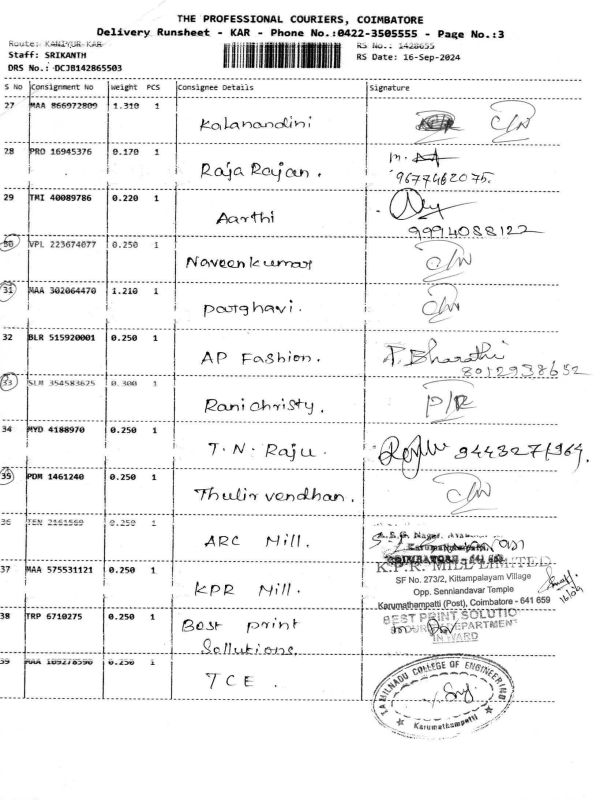 THE PROFESSIONAL COURIERS, COIMBATORE
Delivery Runsheet - KAR - Phone No.:0422-3505555 - Page No.:3
Route: KANIYUR KAR
RS No.: 1428655
Staff: SRIKANTH
RS Date: 16-Sep-2024
DRS No.: DCJB142865503
S No Consignment No Weight PCS Consignee Details Signature
27 MAA 866972809 1.310 1
Kalanandini C/N
28 PRO 16945376 0.170 1
Raja Rajan. 9677462075.
29 TMI 40089786 0.220 1
Aarthi 9994088122
30 VPL 223674077 0.250 1
Naveenkumar C/N
31 MAA 302064470 1.210 1
parghavi. C/N
32 BLR 515920001 0.250 1
AP Fashion. P. Bharathi
8012938652
33 SLM 354583625 0.300 1
Ranichristy. P/R
34 MYD 4188970 0.250 1
T.N. Raju. 9443271964.
35 PDM 1461240 0.250 1
Thulir vendhan. C/N
36 TEN 2161569 0.250 1
ARC Mill.
Karumathampatti,
COIMBATORE - 641 659
37 MAA 575531121 0.250 1
KPR Mill.
K.P.R. MILL LIMITED
SF No. 273/2, Kittampalayam Village
Opp. Senniandavar Temple
Karumathampatti (Post), Coimbatore - 641 659
16/09
38 TRP 6710275 0.250 1
Best print
Sollutions.
BEST PRINT SOLUTIO
DEPARTMENT
IN WARD
39 MAA 109278590 0.250 1
TCE.
TAMILNADU COLLEGE OF ENGINEERING
Karumathampatti